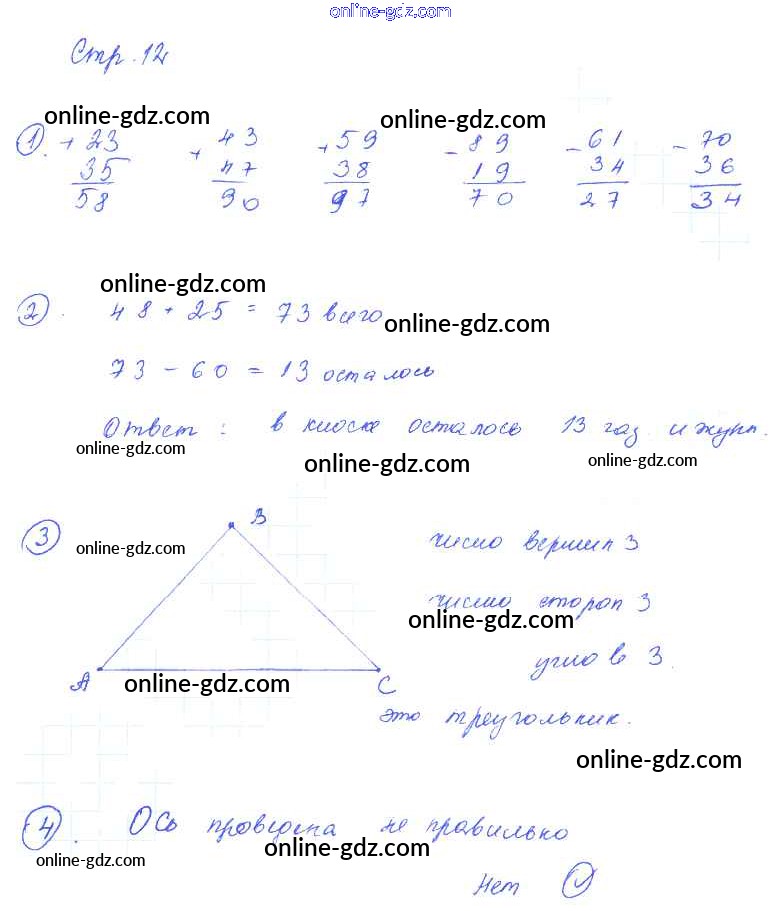 online-gdz.com
Стр. 12
online-gdz.com online-gdz.com
1. + 23 + 43 + 59 - 89 - 61 - 70
35 47 38 19 34 36
58 90 97 70 27 34
online-gdz.com
2. 48 + 25 = 73 всего
online-gdz.com
73 - 60 = 13 осталось
Ответ: в киоске осталось 13 газ. и журн.
online-gdz.com
online-gdz.com
online-gdz.com
3 B
online-gdz.com
число вершин 3
число сторон 3
online-gdz.com
углов 3.
A C
online-gdz.com
это треугольник.
online-gdz.com
4. Ось проведена не правильно
online-gdz.com
online-gdz.com
Нет